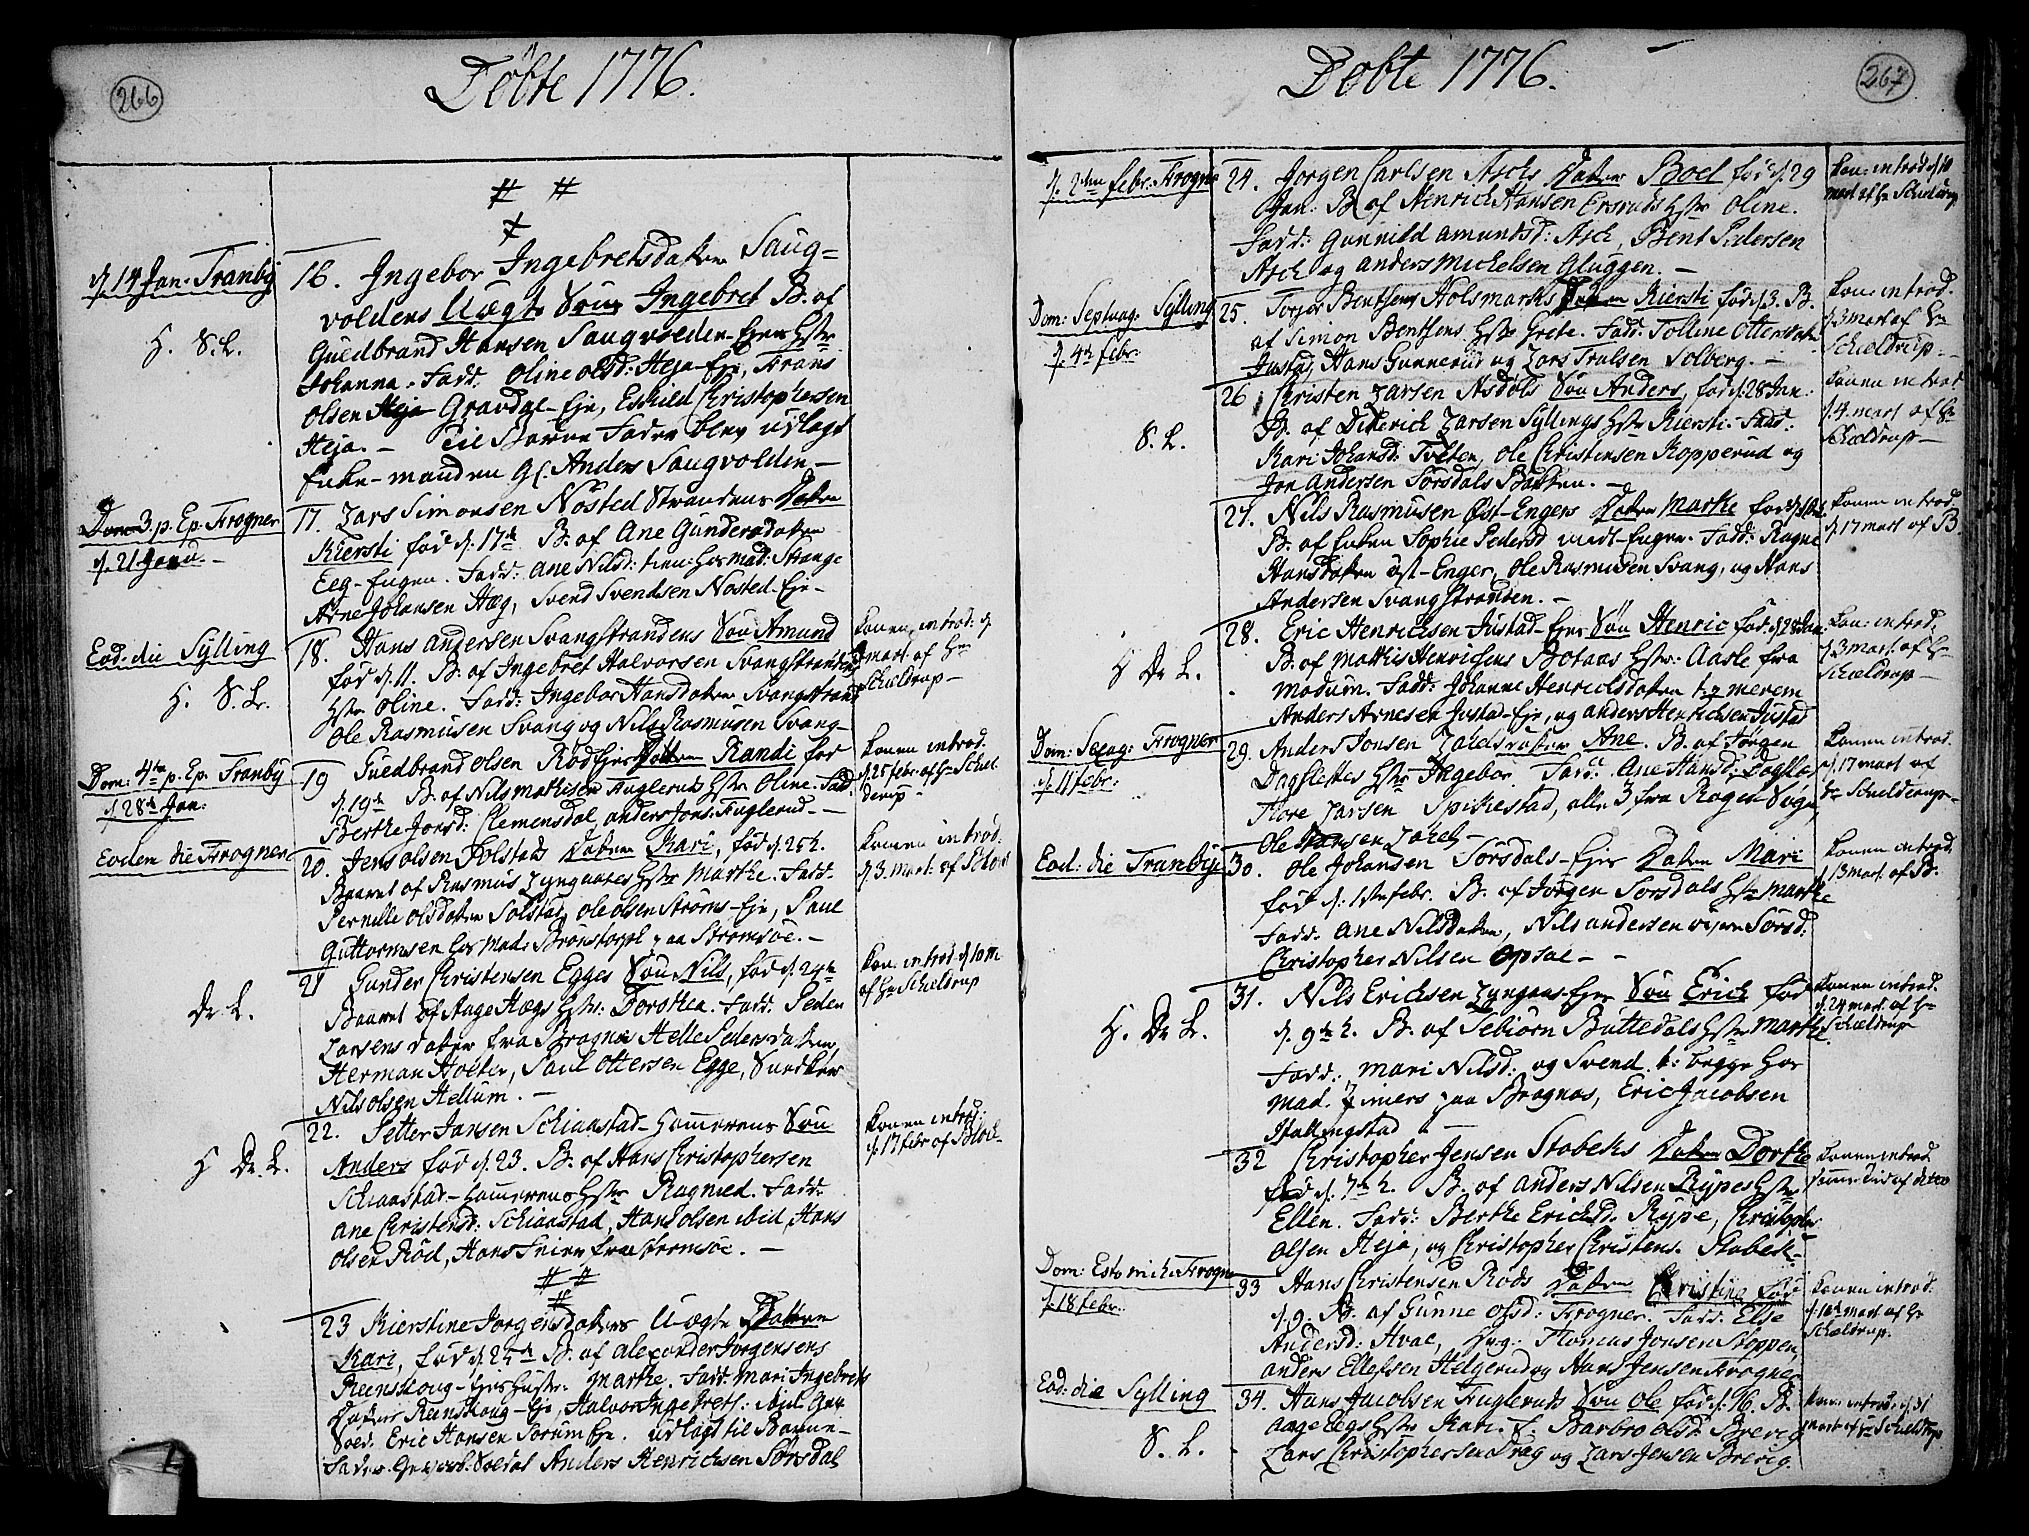 266
Döbte 1776.
# #
#
d. 14 Jan. Tranby
16. Ingebor Ingebretsdatters Saug=
voldens Uægte Søn Ingebret B. af
Guedbrand Hansen Saugvolden-Ejes Hstr
Johanna. Fadd. Oline Olsd: Heja-Eje, Frans
Olsen Heja Gravdal-Eje, Eskild Christophersen
Heja. - Til Barne Fader blev udlagt
Enke-manden Gl. Anders Saugvolden -
H. S. L.
Dom 3. p. Ep. Frogner
d. 21 Janu. -
17. Lars Simonsen Nøsted Strandens Datter
Kiersti fød d. 17de B. af Ane Gundersdatter
Eeg-Engen. Fadd: Ane Nilsd: tien: hos Mad: Strange
Arne Johansen Hæg, Svend Svendsen Nøsted-Eje -
Eod: die Sylling
H. S. L.
18. Hans Andersen Svangstrandens Søn Amund
fød d. 11. B. af Ingebret Halvorsen Svangstrandens
Hstr Oline. Fadd: Ingebor Hansdatter Svangstrand
Ole Rasmusen Svang og Nils Rasmusen Svang -
Konen introd: d.
mart. af Hr
Schieldrup -
Dom: 4de p. Ep. Tranby
d. 28de Jan:
19 Guedbrand Olsen Rød Ejes Datter Randi fød
d. 19de B. af Nils Mathisen Fuglerud Hstr Oline. Fadd
Berthe Jonsd: Clemensdal, Anders Jons: Fuglerud -
Konen introd.
d. 25 febr. af Hr Schiel
derup -
Eodem die Frogner
20. Jens Olsen Solstads Datter Kari, fød d. 25 h.
Baaret af Rasmus Lyngaases Hstr Marthe. Fadd.
Pernille Olsdatter Solstad, Ole Olsen Strøms-Eje, Paul
Guttormsen hos Mad: Brønstorph paa Strømsøe. -
Konen introd.
d. 3. mart. af
21 Gunder Christensen Egges Søn Nils, fød d. 24de
Baaret af Aage Hægs Hstr. Dorothea. Fadd. Peder
Larsens datter fra Bragnæs Helle Pedersdatter,
Herman Holter, Paul Ottersen Egge, Sundbye
Nils Olsen Hellum. -
De L.
Kon. introd d 10 M
af Hr Schieldrup
22. Petter Jansen Schiaastad-Hamerens Søn
Anders fød d. 23. B. af Hans Christophersen
Schiaastad-Hamerens Hstr Ragnild. Fadd:
Ane Christensd: Schiaastad, Hans Olsen ibid, Hans
Olsen Rød, Hans Feier fra Strømsøe. -
H De L.
Konen introd:
d. 17 febr af
# #
#
23 Kierstine Jorgensdatters Uægte Datter
Kari, fød d. 25de B. af Alexander Jorgensens
Reenskoug-Ejes Hustr. Marthe. Fadd: Mari Ingebrets
datter Reenskoug-Eje, Halvor Ingebretss: ibid
Eric Hansen Sørum Eje. Udlagt til Barne-
Fader Anders Henrichsen Sørsdal
267
Döbte 1776.
d. 2den febr. Frogner
24. Jorgen Carlsen Aschs Datter Boel fød d. 29
Jan: B. af Henrich Hansen Ersruds Hstr Oline.
Fadd: Gunnild Amundsd: Asch, Bent Pedersen
Asch og Anders Michelsen Gluggen. -
Kon: introd d. 10
mart af Hr Schieldrup
Dom: Septuag: Sylling
d. 4de febr.
25. Torger Bentsens Holsmarks Datter Kiersti fød d. 3. B.
af Simon Bentsens Hstr Grete. Fadd: Tolline Ottersdatter
Justad, Hans Gunnerud og Lars Tralsen Solberg. -
Kon: introd.
d. 3 mart af Hr
Schieldrup -
S. L.
26 Christen Larsen Asdøls Søn Anders, fød d. 28 Jan.
B. af Diderich Larsen Syllings Hstr Kiersti. Fadd:
Kari Johansd: Tveten, Ole Christensen Kopperud og
Jon Andersen Sørsdals Bakken. -
Konen introd
d. 4. mart af Hr
Schieldrup -
27. Nils Rasmusen Øst-Engers Datter Marthe fød d. 10de
B. af Enken Sophie Pedersd Medt-Engen. Fadd: Ragne
Hansdatter Øst-Enger, Ole Rasmusen Svang, og Hans
Andersen Svangstranden. -
Konen introd
d. 17 mart af B.
28. Eric Henrichsen Justad-Ejes Søn Henric fød d. 28 Jan:
B. af Mathis Henrichsens Botaas Hstr: Aasle fra
Modum. Fadd: Johanne Henrichsdatter
Anders Arnesen Justad-Eje, og Anders Henrichsen Justad
H De L.
Kon: introd.
d. 3 mart. af Hr
Schieldrup -
Dom: Sexag: Frogner
d. 11 febr:
29. Anders Jonsen datter Ane. B. af Jørgen
Dagslettes Hstr Ingebor. Fadd: Ane Hansd: Dagslet
Tore Larsen Spikestad, alle 3 fra Røgen Sogn,
Ole Hansen
Konen introd.
d. 17 mart af
Hr Schieldrup -
Eod: die Tranby
30. Ole Johansen Sørsdals-Ejes Datter Mari
fød d. 1ste febr. B. af Jørgen Sørsdals Hstr Marthe
Fadd: Ane Nilsdatter, Nils Andersen Sørsd:
Christopher Nilsen Opsal - -
Konen introd.
d. 13 mart. af B.
31. Nils Ericksen Lyngaas-Ejes Søn Erick fød
d. 9de h. B. af Tebiørn Buttedals Hstr Marthe.
Fadd: Mari Nilsd: og Svend t: begge hos
Mad. Zimers paa Bragnæs, Eric Jacobsen
Hallingstad -
H. De L.
Konen introd.
d. 24 mart. af Hr
Schieldrup
32 Christopher Jensen Stabeks Datter Dorthe
fød d. 7de h. B. af Anders Nilsen Rypes Hstr
Ellen. Fadd: Berthe Ericksd: Rype, Christopher
Olsen Heja, og Christopher Christens: Stabek -
Konen introd.
samme tid af
Dom: Esto mihi Frogner
d. 18 febr.
33 Hans Christensen Røds Datter Christine fød
d. 9. B. af Gunne Olsd: Frogner. Fadd: Else
Andersd: Hval, Jvg. Thomas Jonsen Stoppen,
Anders Ellefsen Helgerud og Hans Jensen Frogner
Konen introd:
d. 10de mart af Hr
Schieldrup.
Eod: die Sylling
S. L.
34. Hans Jacobsen Fuglerud Søn Ole fød d. 16. B.
Aage Eegs Hstr Kari. F. Barbro Olsd. Brevig
Lars Christophersen Præg og Lars Jensen Brevig.
Kon: introd: d. 31
mart af Hr Schieldrup